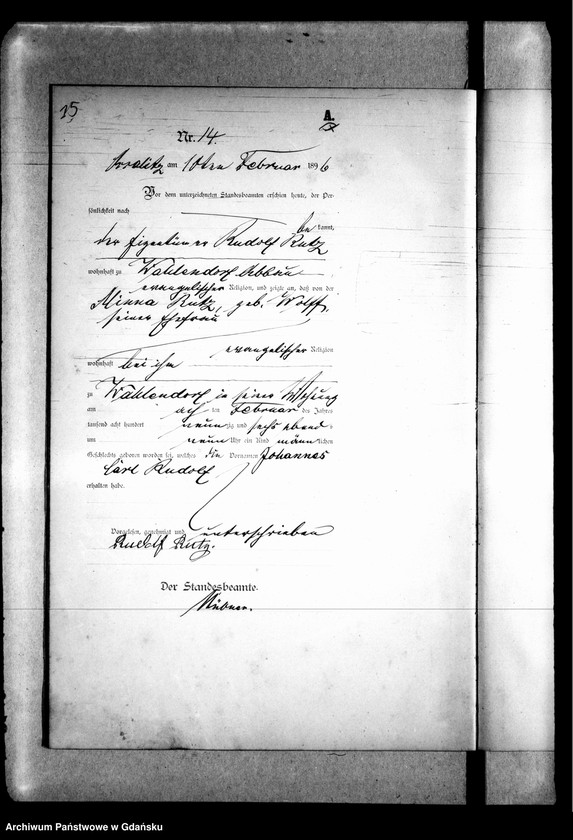 15
A.
Nr. 14.
am 10ten Februar 1896
Vor dem unterzeichneten Standesbeamten erschien heute, der Per-
sönlichkeit nach
bekannt,
der Eigentümer Rudolf Rutz
wohnhaft zu Wahlendorf Abbau
evangelischer Religion, und zeigte an, daß von der
Minna Rutz, geb. Wolff,
seiner Ehefrau
evangelischer Religion
wohnhaft bei ihm
zu Wahlendorf in seiner Wohnung
am ten Februar des Jahres
tausend acht hundert neunzig und sechs abend
um neun Uhr ein Kind männlichen
Geschlechts geboren worden sei, welches die Vornamen Johannes
Carl Rudolf
erhalten habe.
Vorgelesen, genehmigt und unterschrieben
Rudolf Rutz.
Der Standesbeamte.
Archiwum Państwowe w Gdańsku